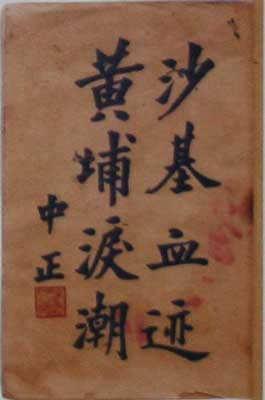 沙基血迹
黄埔淚潮
中正